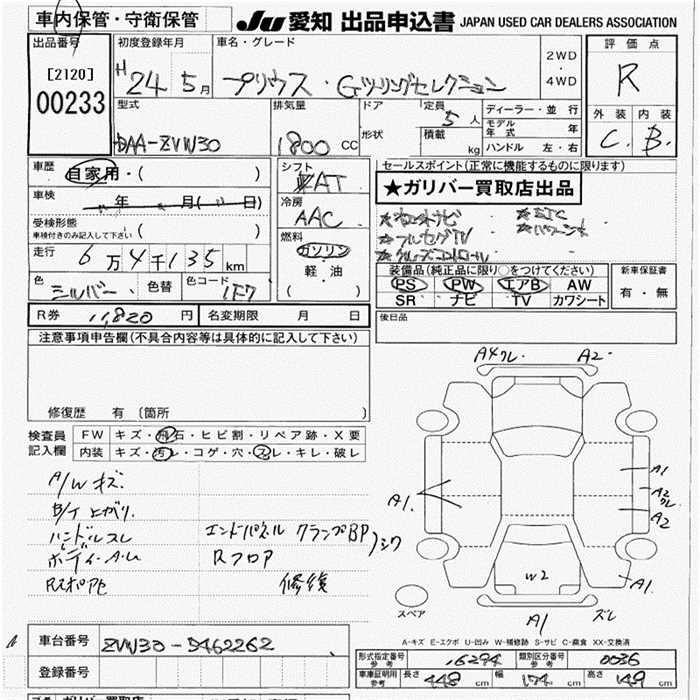 車内保管・守衛保管
JU 愛知 出品申込書 JAPAN USED CAR DEALERS ASSOCIATION
出品番号
[2120]
00233
初度登録年月
H 24 5月
車名・グレード
プリウス・Gツーリングセレクション
2WD
・
4WD
評価点
R
型式
DAA-ZVW30
排気量
1800 CC
ドア
形状
定員 5人
積載 kg
ディーラー・並行
モデル年式 年
ハンドル 左・右
外装 内装
C. B.
車歴
自家用・( )
車検
年 月( 日)
受検形態
車検付きのみ記入して下さい ( )
走行
6万4千135km
色 シルバー 色替 色コード 1F7
シフト
AT
冷房
AAC
燃料
ガソリン
・
軽・油
( )
セールスポイント(正常に機能するものに限ります)
★ガリバー買取店出品
★ETC
★フルセグTV
★クルーズコントロール
装備品(純正品に限り○をつけてください)
PS PW エアB AW
SR ナビ TV カワシート
新車保証書
有・無
後日品
R券 11,820円 名変期限 月 日
注意事項申告欄(不具合内容等は具体的に記入して下さい)
修復歴 有 〔箇所
検査員記入欄
FW キズ・飛石・ヒビ割・リペア跡・X要
内装 キズ・汚レ・コゲ・穴・スレ・キレ・破レ
A/Wキズ
B/T上がり.
ハンドルスレ
ボディ・A.U
エンドパネル クランプBP)シワ
Rフロア
修復
A4クレ A2
A1
A1
A2クレ
A2
W2
A1
A1
ズレ
スペア
A-キズ E-エクボ U-凹み W-補修跡 S-サビ C-腐食 XX-交換済
車台番号 ZVW30-5462262
登録番号
形式指定番号 参考 16294
類別区分番号 参考 0036
車庫証明用 参考 長さ 448cm 幅 174cm 高さ 149cm